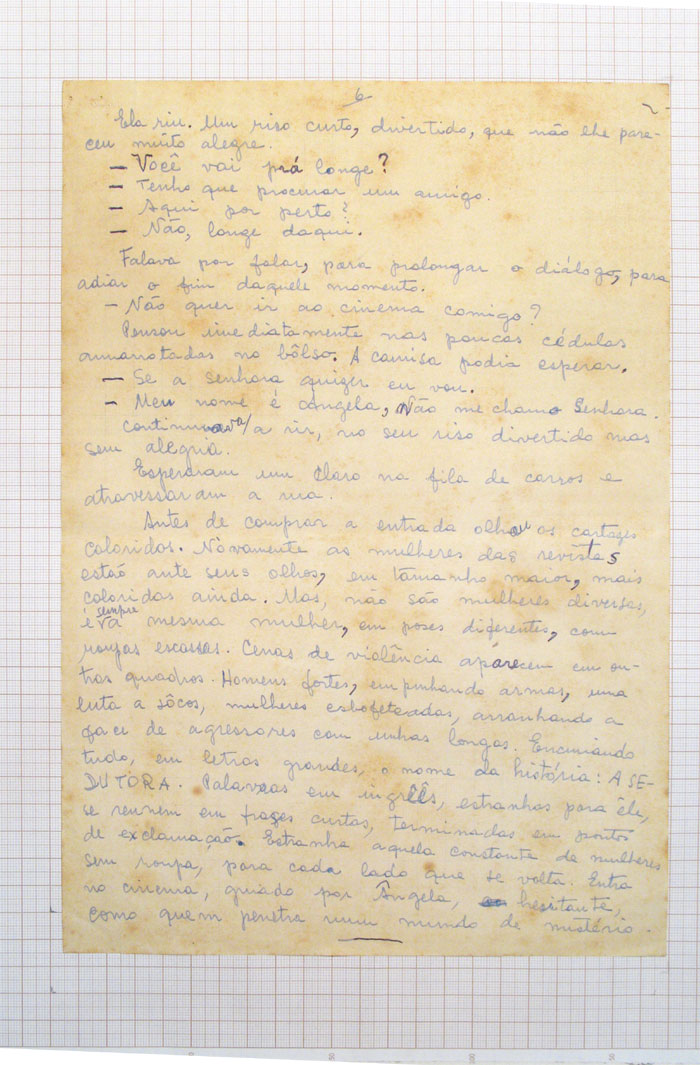 6
Ela riu. Um riso curto, divertido, que não lhe pare-
ceu muito alegre.
— Você vai prá longe?
— Tenho que procurar um amigo.
— Aqui por perto?
— Não, longe daqui.
Falava por falar, para prolongar o diálogo, para
adiar o fim daquele momento.
— Não quer ir ao cinema comigo?
Pensou imediatamente nas poucas cédulas
amarrotadas no bôlso. A camisa podia esperar.
— Se a senhora quizer eu vou.
— Meu nome é Angela, Não me chamo Senhora.
Continuava a rir, no seu riso divertido mas
sem alegria.
Esperaram um claro na fila de carros e
atravessaram a rua.
Antes de comprar a entrada olhou os cartazes
coloridos. Novamente as mulheres das revistas
estão ante seus olhos, em tamanho maior, mais
coloridas ainda. Mas, não são mulheres diversas,
é sempre a mesma mulher, em poses diferentes, com
roupas escassas. Cenas de violência aparecem em ou-
tros quadros. Homens fortes, empunhando armas, uma
luta a sôcos, mulheres esbofeteadas, arranhando a
face de agressores com unhas longas. Encimando
tudo, em letras grandes, o nome da história: A SE-
DUTORA. Palavras em inglês, estranhas para êle,
se reunem em frases curtas, terminadas em pontos
de exclamação. Estranha aquela constante de mulheres
sem roupa, para cada lado que se volta. Entra
no cinema, guiado por Ângela, hesitante,
como quem penetra num mundo de mistério.